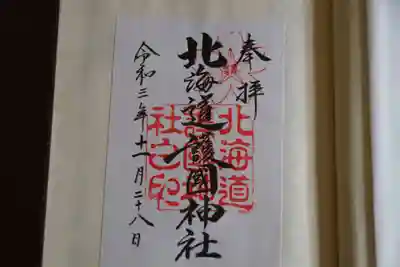 奉拝
北海道護國神社
令和三年十一月二十八日
北海道
社之印